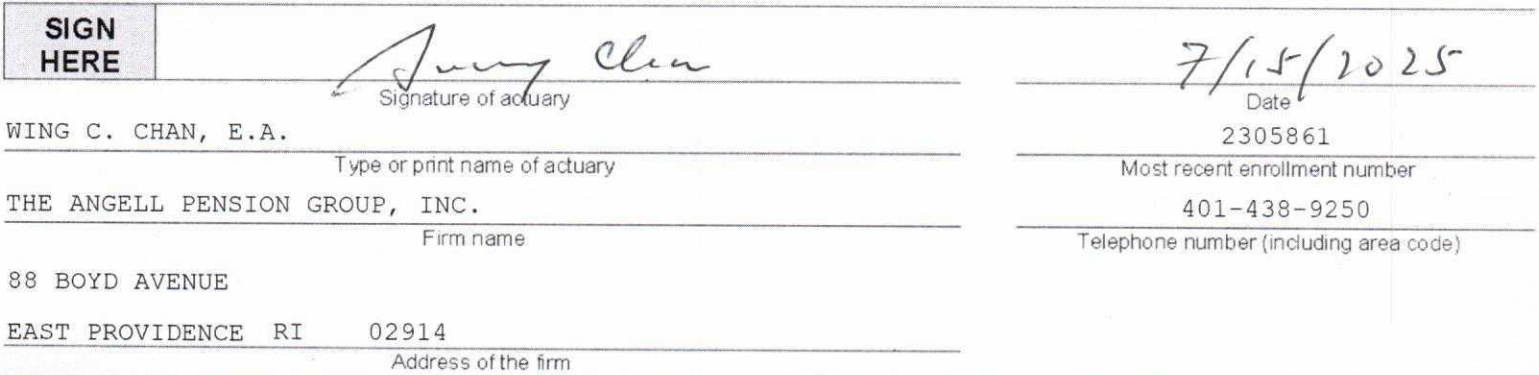 SIGN
HERE
Chan 7/15/2025
Signature of actuary Date
WING C. CHAN, E.A. 2305861
Type or print name of actuary Most recent enrollment number
THE ANGELL PENSION GROUP, INC. 401-438-9250
Firm name Telephone number (including area code)
88 BOYD AVENUE
EAST PROVIDENCE RI 02914
Address of the firm